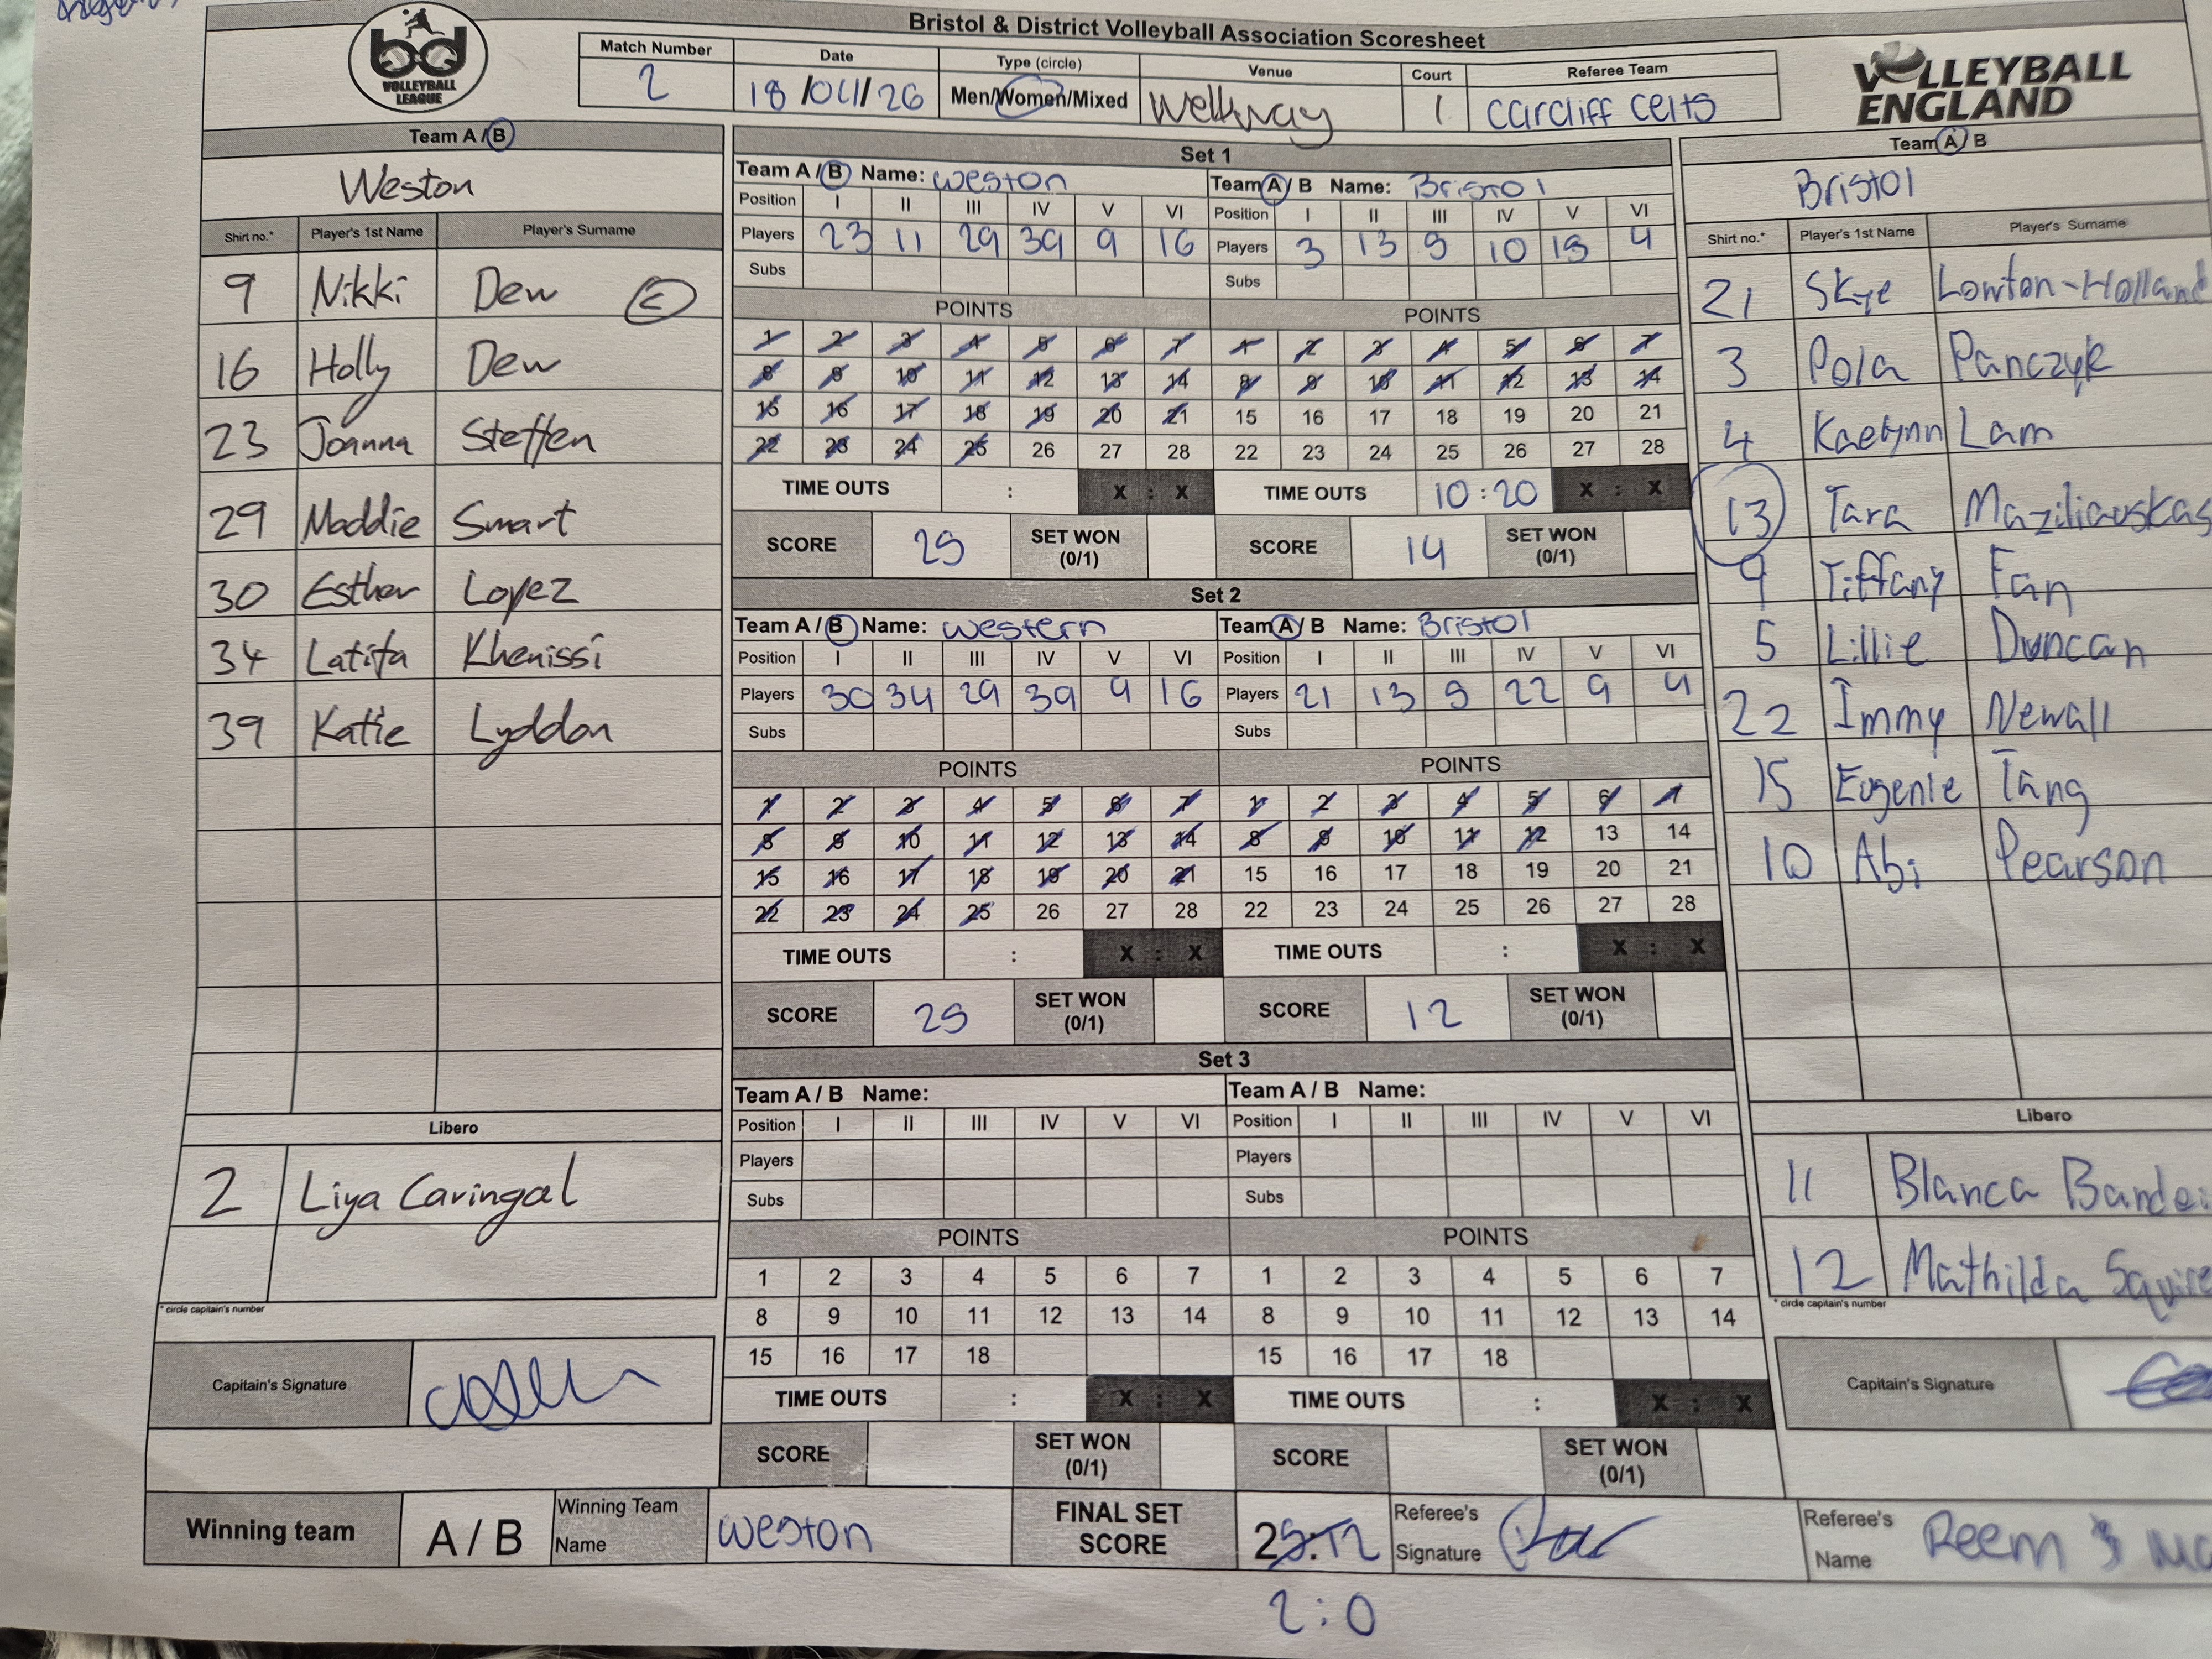 Bristol & District Volleyball Association Scoresheet
bd
VOLLEYBALL
LEAGUE
Match Number Date Type (circle) Venue Court Referee Team
2 18/04/26 Men/Women/Mixed Wellsway 1 Cardiff Celts
VOLLEYBALL
ENGLAND
Team A / B
Weston
Shirt no.* Player's 1st Name Player's Surname
9 Nikki Dew C
16 Holly Dew
23 Joanna Steffen
29 Maddie Smart
30 Esther Lopez
34 Latifa Khenissi
39 Katie Lyddon
Libero
2 Liya Caringal
* circle capitain's number
Capitain's Signature
Set 1
Team A / B Name: Weston Team A / B Name: Bristol
Position I II III IV V VI Position I II III IV V VI
Players 23 11 29 39 9 16 Players 3 13 5 10 15 4
Subs Subs
POINTS POINTS
1 2 3 4 5 6 7 1 2 3 4 5 6 7
8 9 10 11 12 13 14 8 9 10 11 12 13 14
15 16 17 18 19 20 21 15 16 17 18 19 20 21
22 23 24 25 26 27 28 22 23 24 25 26 27 28
TIME OUTS : X : X TIME OUTS 10:20 X : X
SCORE 25 SET WON (0/1) SCORE 14 SET WON (0/1)
Set 2
Team A / B Name: Western Team A / B Name: Bristol
Position I II III IV V VI Position I II III IV V VI
Players 30 34 29 39 9 16 Players 21 13 5 22 9 4
Subs Subs
POINTS POINTS
1 2 3 4 5 6 7 1 2 3 4 5 6 7
8 9 10 11 12 13 14 8 9 10 11 12 13 14
15 16 17 18 19 20 21 15 16 17 18 19 20 21
22 23 24 25 26 27 28 22 23 24 25 26 27 28
TIME OUTS : X : X TIME OUTS : X : X
SCORE 25 SET WON (0/1) SCORE 12 SET WON (0/1)
Set 3
Team A / B Name: Team A / B Name:
Position I II III IV V VI Position I II III IV V VI
Players Players
Subs Subs
POINTS POINTS
1 2 3 4 5 6 7 1 2 3 4 5 6 7
8 9 10 11 12 13 14 8 9 10 11 12 13 14
15 16 17 18 15 16 17 18
TIME OUTS : X : X TIME OUTS : X : X
SCORE SET WON (0/1) SCORE SET WON (0/1)
Team A / B
Bristol
Shirt no.* Player's 1st Name Player's Surname
21 Skye Lowton-Holland
3 Pola Panczyk
4 Kaelynn Lam
13 Tara Maziliauskas
9 Tiffany Fan
5 Lillie Duncan
22 Immy Newall
15 Eugenie Tang
10 Abi Pearson
Libero
11 Blanca
12 Mathilda Squire
* circle capitain's number
Capitain's Signature
Winning team A / B Winning Team Name Weston FINAL SET SCORE 25:12 Referee's Signature Referee's Name Reem
2:0